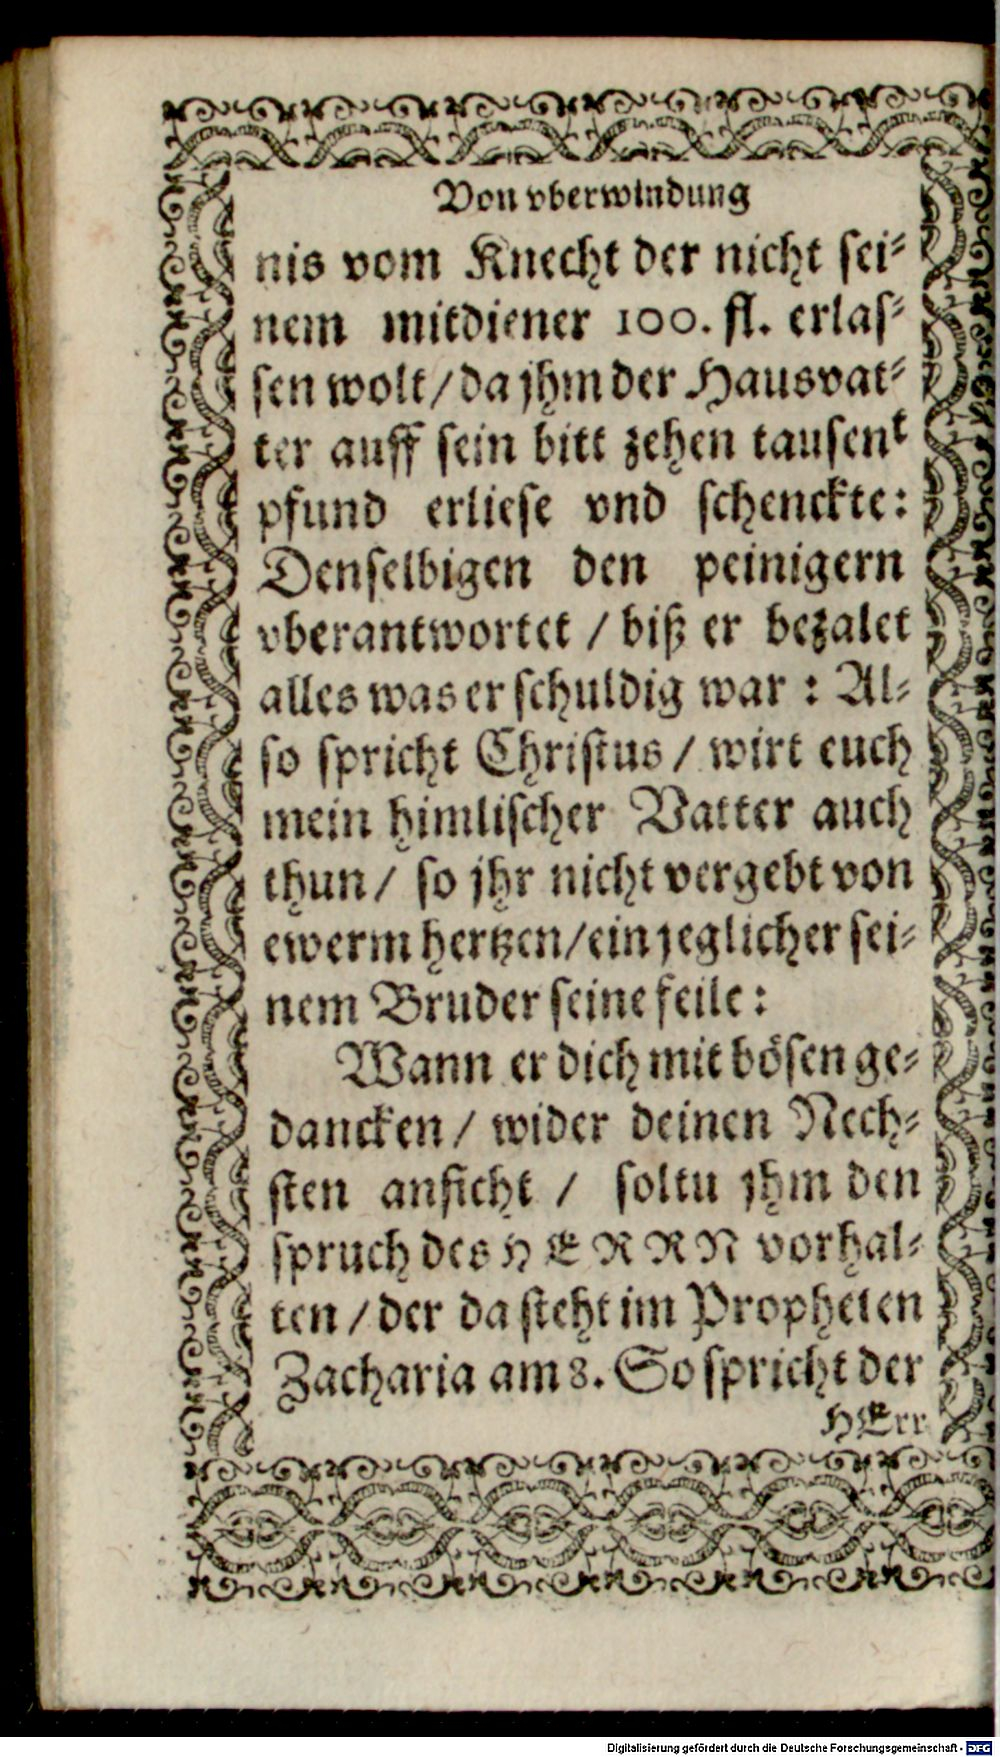 Von vberwindung
nis vom Knecht der nicht sei⸗
nem mitdiener 100. fl. erlas⸗
sen wolt / da jhm der Hausvat⸗
ter auff sein bitt zehen tausent
pfund erliese vnd schenckte:
Denselbigen den peinigern
vberantwortet / biß er bezalet
alles was er schuldig war : Al⸗
so spricht Christus / wirt euch
mein himlischer Vatter auch
thun / so jhr nicht vergebt von
ewerm hertzen / ein jeglicher sei⸗
nem Bruder seine feile :
Wann er dich mit bösen ge⸗
dancken / wider deinen Nech⸗
sten anficht / soltu jhm den
spruch des HERRN vorhal⸗
ten / der da steht im Propheten
Zacharia am 8. So spricht der
HErr
Digitalisierung gefördert durch die Deutsche Forschungsgemeinschaft - DFG